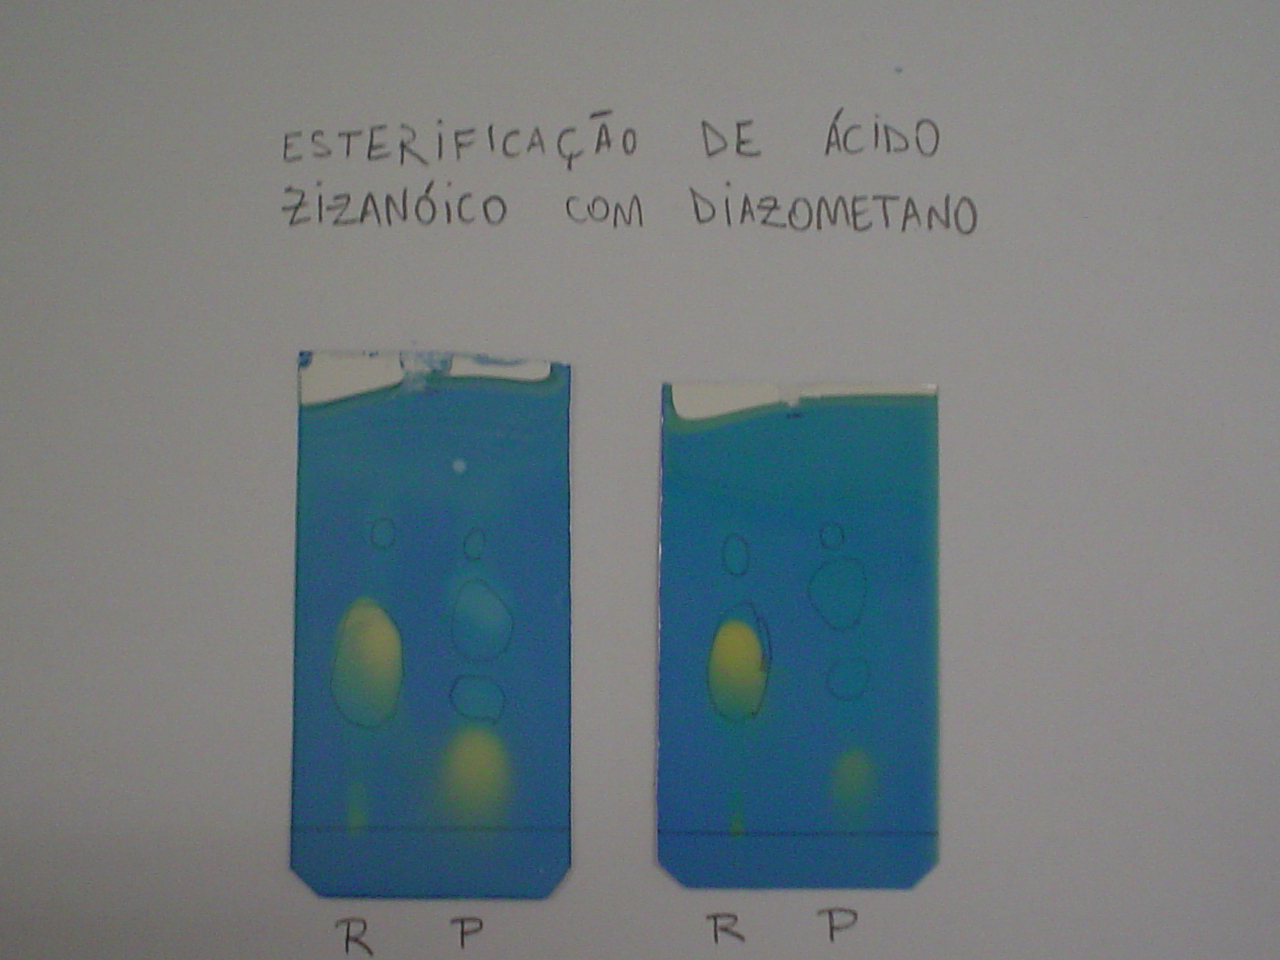 ESTERIFICAÇÃO DE ÁCIDO
ZIZANÓICO COM DIAZOMETANO
R P R P